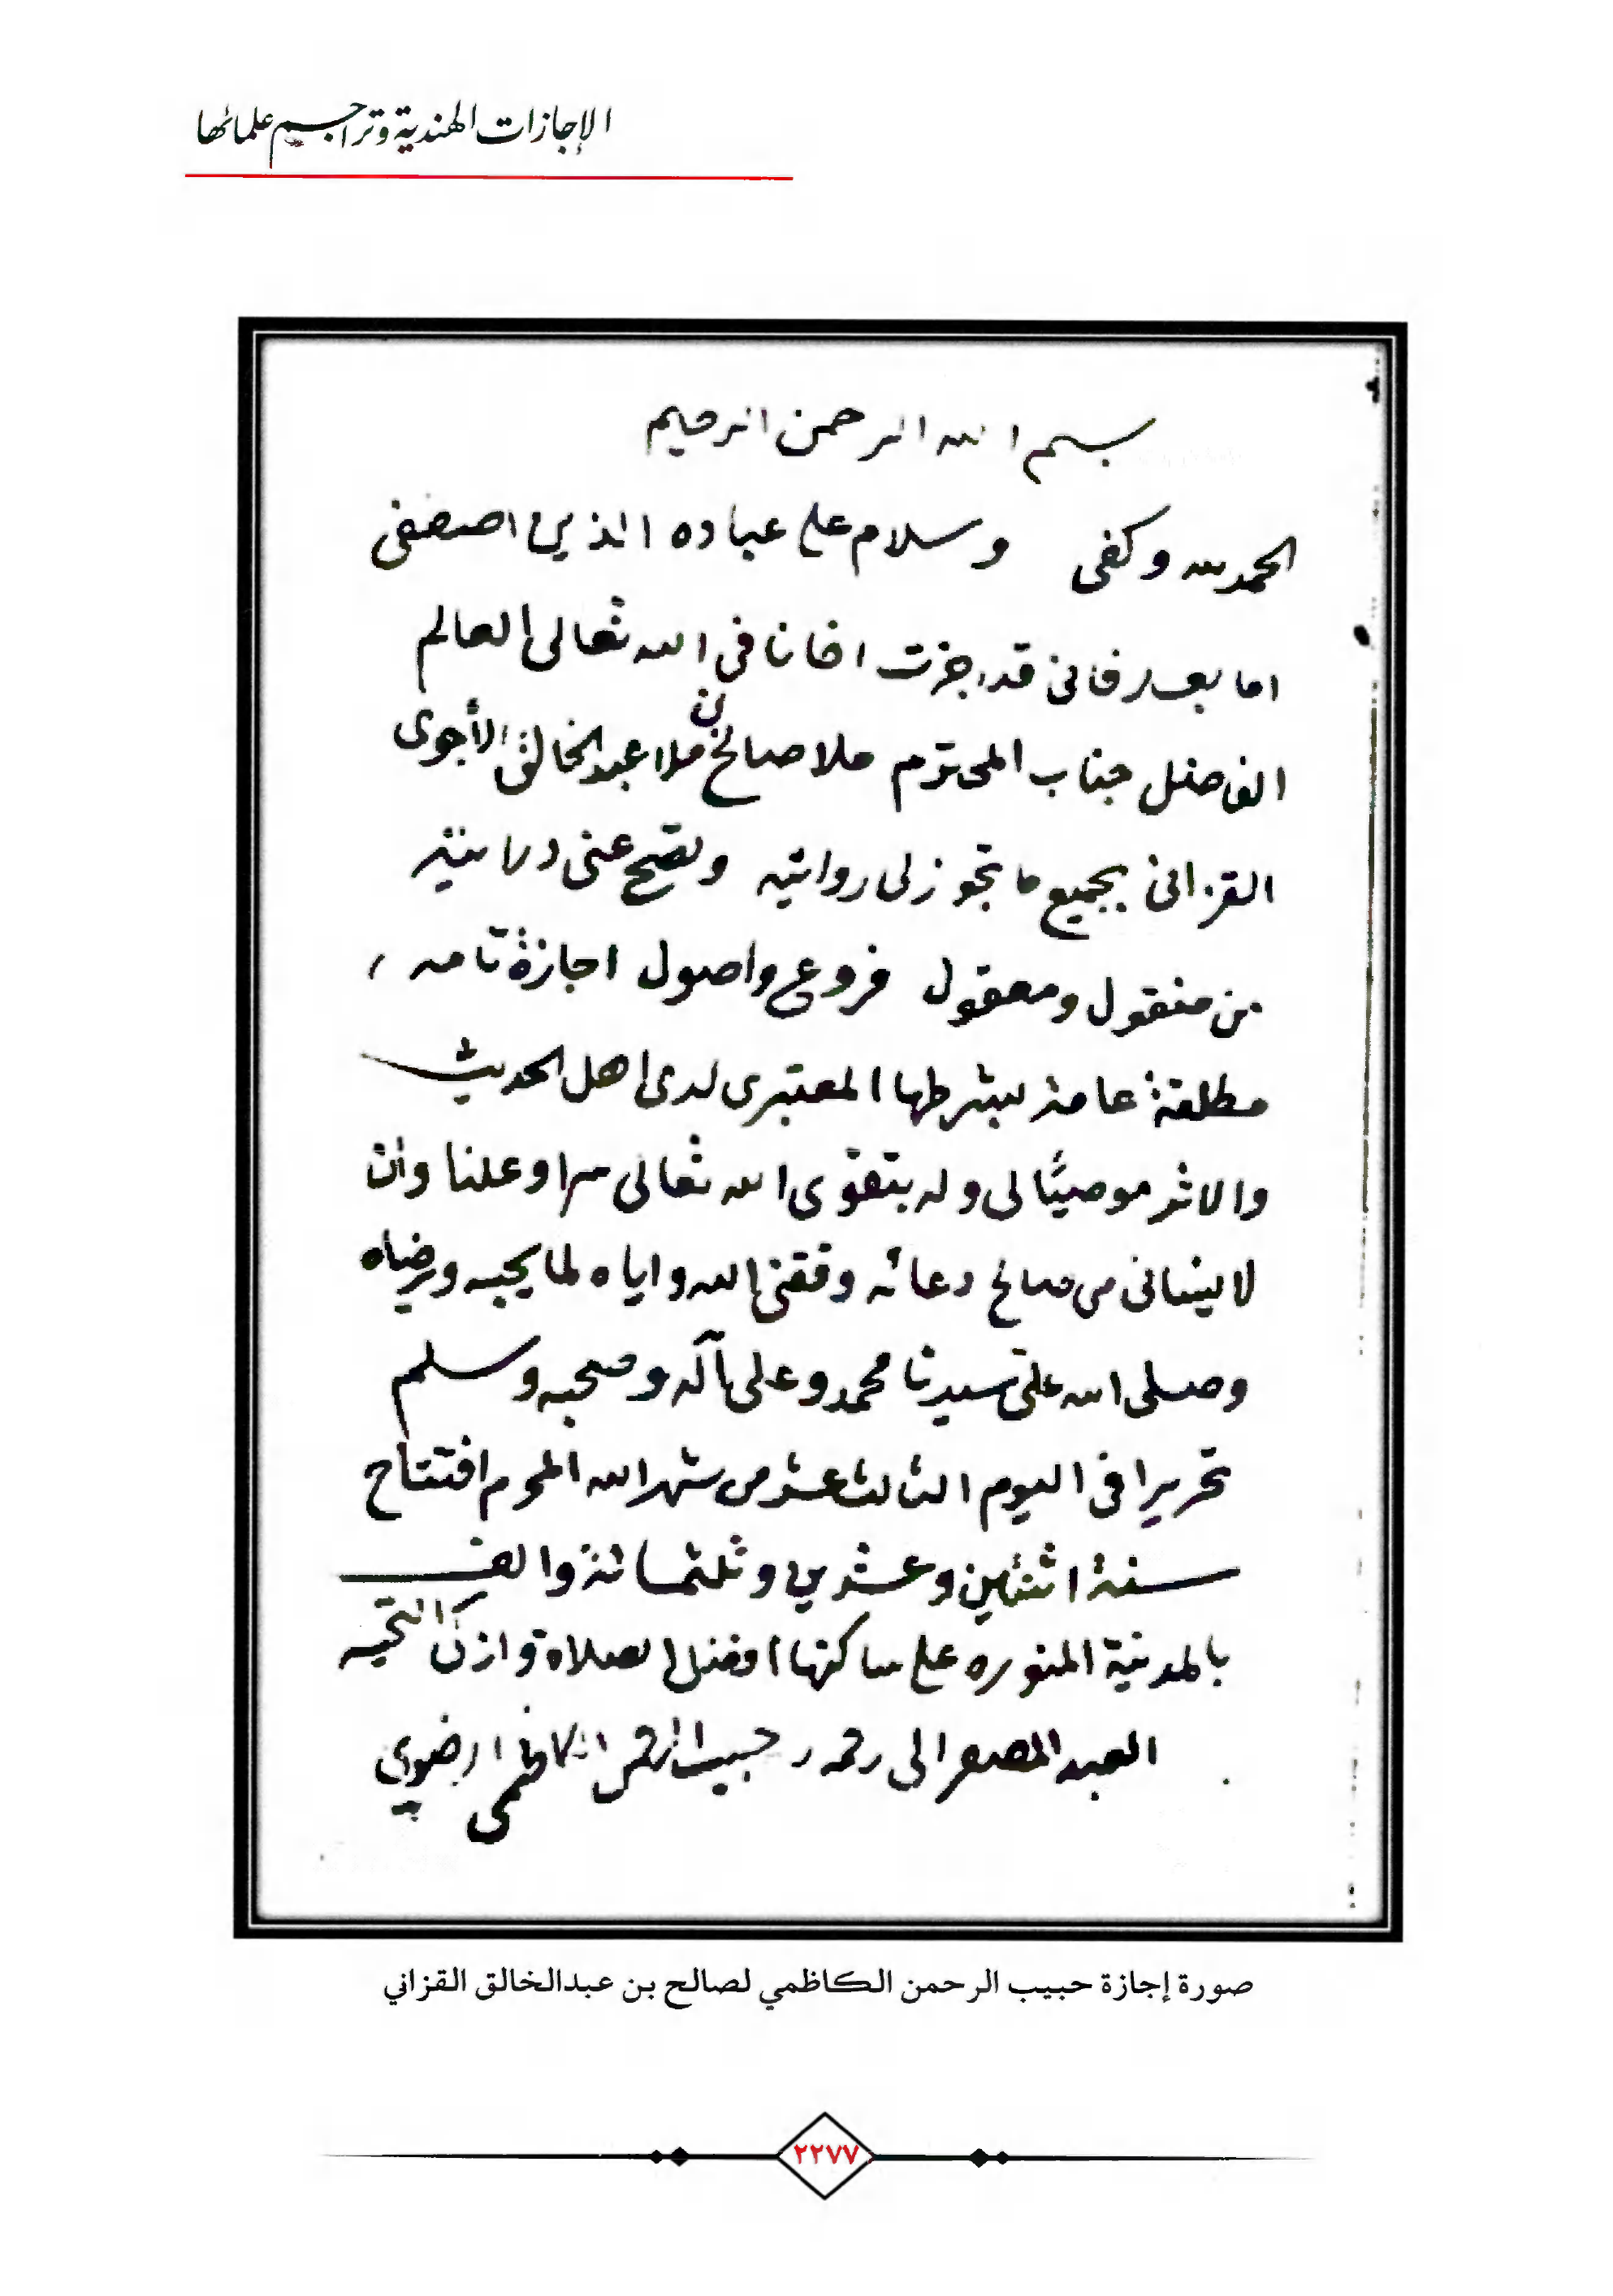 الإجازات الهندية وتراجم علمائها
بسم الله الرحمن الرحيم
الحمد لله وكفى وسلام على عباده الذين اصطفى
اما بعد فانى قد اجزت اخانا فى الله تعالى العالم
الفاضل جناب المحترم ملا صالح بن ملا عبد الخالق
القزانى بجميع ما تجوز لى روايته وتصح عنى درايته
من منقول ومعقول فروع واصول اجازة تامه
مطلقة عامة بشرطها المعتبرى لدى اهل الحديث
والاثر موصيًا لى وله بتقوى الله تعالى سرا وعلنا وأن
لا ينسانى من صالح دعائه وفقنى الله واياه لما يحبه ويرضاه
وصلى الله على سيدنا محمد وعلى آله وصحبه وسلم
تحريرا فى اليوم الثالث عشر من شهر الله المحرم افتتاح
سنة اثنتين وعشرين وثلثمائة والف
بالمدينة المنوره على ساكنها افضل الصلاة وازكى التحيه
العبد الى رحمه حبيب الرحمن الكاظمى الرضوي
صورة إجازة حبيب الرحمن الكاظمي لصالح بن عبدالخالق القزاني
٢٢٧٧